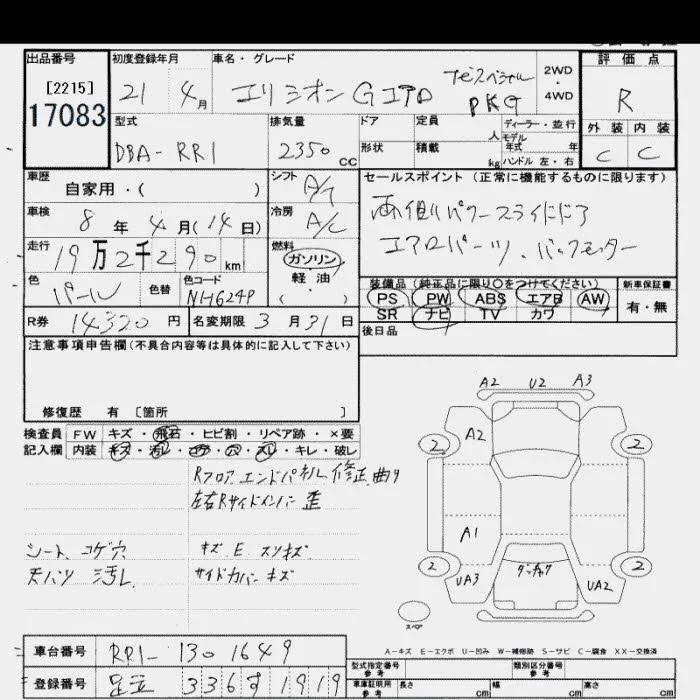 出品番号
[2215]
17083
初度登録年月
21 4月
車名・グレード
エリシオン Gエアロ
PKG
2WD
・
4WD
評価点
R
外装 内装
C C
型式
DBA-RR1
排気量
2350 cc
ドア
形状
定員
人
積載
kg
ディーラー・並行
モデル
年式 年
ハンドル 左・右
車歴
自家用・( )
シフト
A/T
車検
8年4月(14日)
冷房
A/C
走行
19万2千290km
燃料
ガソリン
軽油
( )
色
パール
色替
色コード
NH624P
セールスポイント(正常に機能するものに限ります)
両側パワースライドドア
エアロパーツ、バックモニター
装備品(純正品に限り○をつけてください)
PS PW ABS エアB AW
SR ナビ TV カワ
新車保証書
有・無
後日品
R券 14320円 名変期限 3月31日
注意事項申告欄(不具合内容等は具体的に記入して下さい)
修復歴 有 [箇所 ]
検査員 FW キズ・飛石・ヒビ割・リペア跡・×要
記入欄 内装 キズ・汚レ・コゲ・穴・スレ・キレ・破レ
Rフロア、エンドパネル 修正、曲リ
左右Rサイドメンバー 歪
シート、コゲ穴
天バリ 汚レ
キズ、E、スリキズ
サイドカバー キズ
A2 U2 A3
A2
2 2
A1
2 2
UA3 UA2
スペア
A-キズ E-エクボ U-凹み W-補修跡 S-サビ C-腐食 XX-交換済
車台番号 RR1-1301649
登録番号 足立 336 す 1919
型式指定番号
参考
類別区分番号
参考
車庫証明用
参考
長さ cm 幅 cm 高さ cm